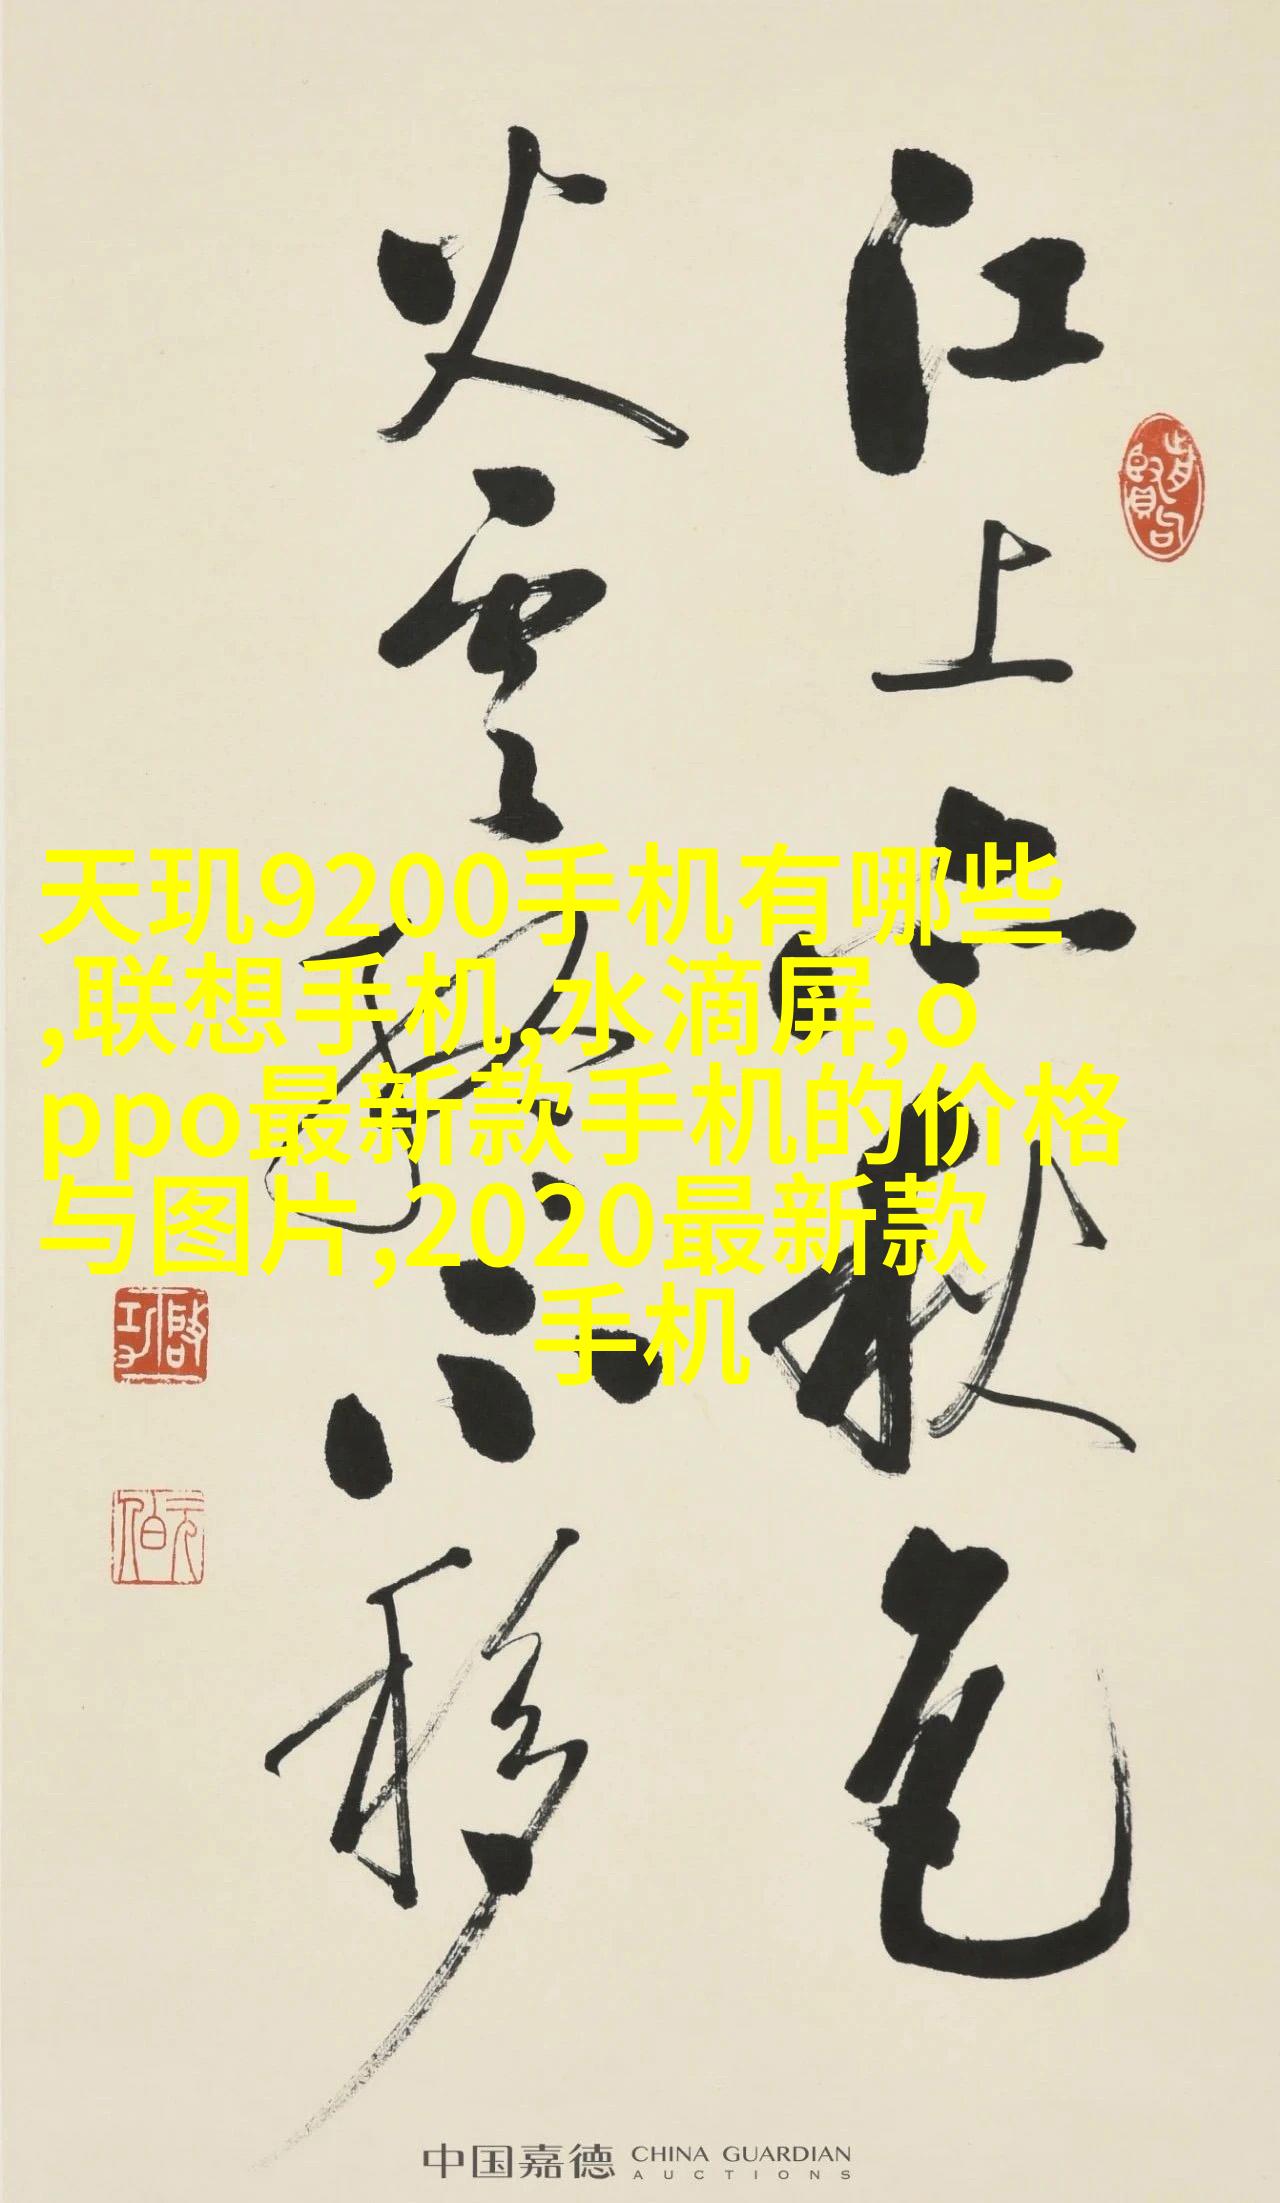 江上亦秋色
火雲終不移
啓功
元伯
天玑9200手机有哪些
,联想手机,水滴屏,o
ppo最新款手机的价格
与图片,2020最新款
手机
中国嘉德 CHINA GUARDIAN
AUCTIONS